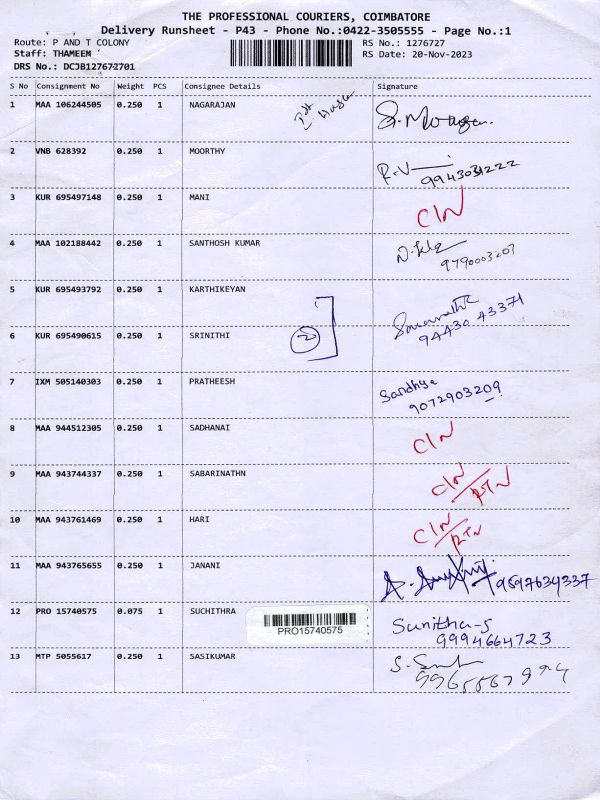 THE PROFESSIONAL COURIERS, COIMBATORE
Delivery Runsheet - P43 - Phone No.:0422-3505555 - Page No.:1
Route: P AND T COLONY RS No.: 1276727
Staff: THAMEEM RS Date: 20-Nov-2023
DRS No.: DCJB127672701
S No Consignment No Weight PCS Consignee Details Signature
1 MAA 106244505 0.250 1 NAGARAJAN
2 VNB 628392 0.250 1 MOORTHY R.V
3 KUR 695497148 0.250 1 MANI C/N
4 MAA 102188442 0.250 1 SANTHOSH KUMAR
9790003207
5 KUR 695493792 0.250 1 KARTHIKEYAN
94430 43371
6 KUR 695490615 0.250 1 SRINITHI 2
7 IXM 505140303 0.250 1 PRATHEESH Sandhya
9072903209
8 MAA 944512305 0.250 1 SADHANAI C/N
9 MAA 943744337 0.250 1 SABARINATHN C/N/RTN
10 MAA 943761469 0.250 1 HARI C/N/RTN
11 MAA 943765655 0.250 1 JANANI 9597634337
12 PRO 15740575 0.075 1 SUCHITHRA PRO15740575 Sunitha-S
9994664723
13 MTP 5055617 0.250 1 SASIKUMAR